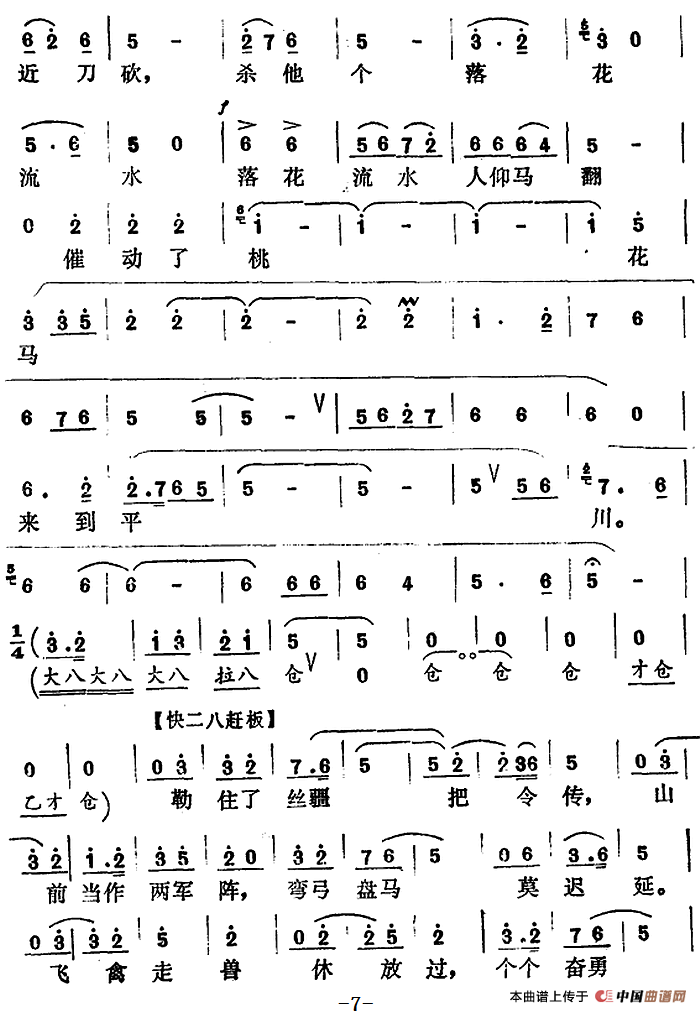 6 2 6 | 5 - | 2 7 6 | 5 - | 3 . 2 | 3 0
近 刀 砍， 杀 他 个 落 花
f
5 . 6 | 5 0 | 6 6 | 5 6 7 2 | 6 6 6 4 | 5 -
流 水 落 花 流 水 人仰马 翻
0 2 | 2 2 | 1 - | 1 - | 1 - | 1 5
催 动 了 桃 花
3 3 5 | 2 2 | 2 - | 2 2 | 1 . 2 | 7 6
马
6 7 6 | 5 5 | 5 - V | 5 6 2 7 | 6 6 | 6 0
6 . 2 | 2 . 7 6 5 | 5 - | - - | 5 V 5 6 | 7 . 6
来 到 平 川。
6 6 | 6 - | 6 6 6 | 6 4 | 5 . 6 | 5 -
1/4 ( 3 . 2 | 1 3 | 2 1 | 5 V | 5 | 0 | 0 | 0 | 0
(大八大八 大八 拉八 仓 0 仓 仓 仓 才仓
【快二八赶板】
0 | 0 | 0 3 | 3 2 | 7 . 6 | 5 | 5 2 | 2 3 6 | 5 | 0 3
乙才 仓) 勒 住了 丝疆 把 令 传， 山
3 2 | 1 . 2 | 3 5 | 2 0 | 3 2 | 7 6 | 5 | 0 6 | 3 . 6 | 5
前 当作 两军 阵， 弯弓 盘马 莫 迟 延。
0 3 | 3 2 | 5 | 2 | 0 2 | 2 5 | 2 | 3 . 2 | 7 6 | 5
飞 禽 走 兽 休 放 过， 个个 奋勇
-7-
本曲谱上传于 中国曲谱网